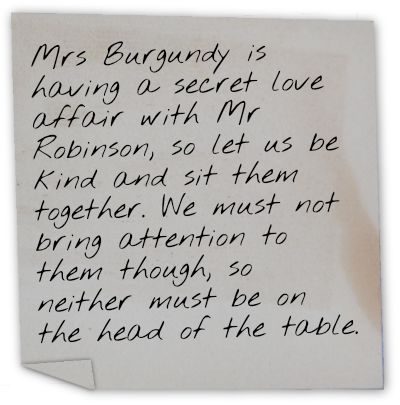 Mrs Burgundy is
having a secret love
affair with Mr
Robinson, so let us be
kind and sit them
together. We must not
bring attention to
them though, so
neither must be on
the head of the table.